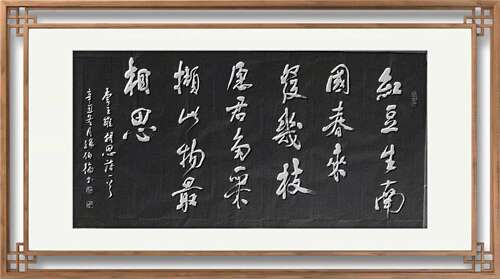 紅豆生南
國春來
發幾枝
愿君多采
擷此物最
相思
王維相思詩一首
辛丑月